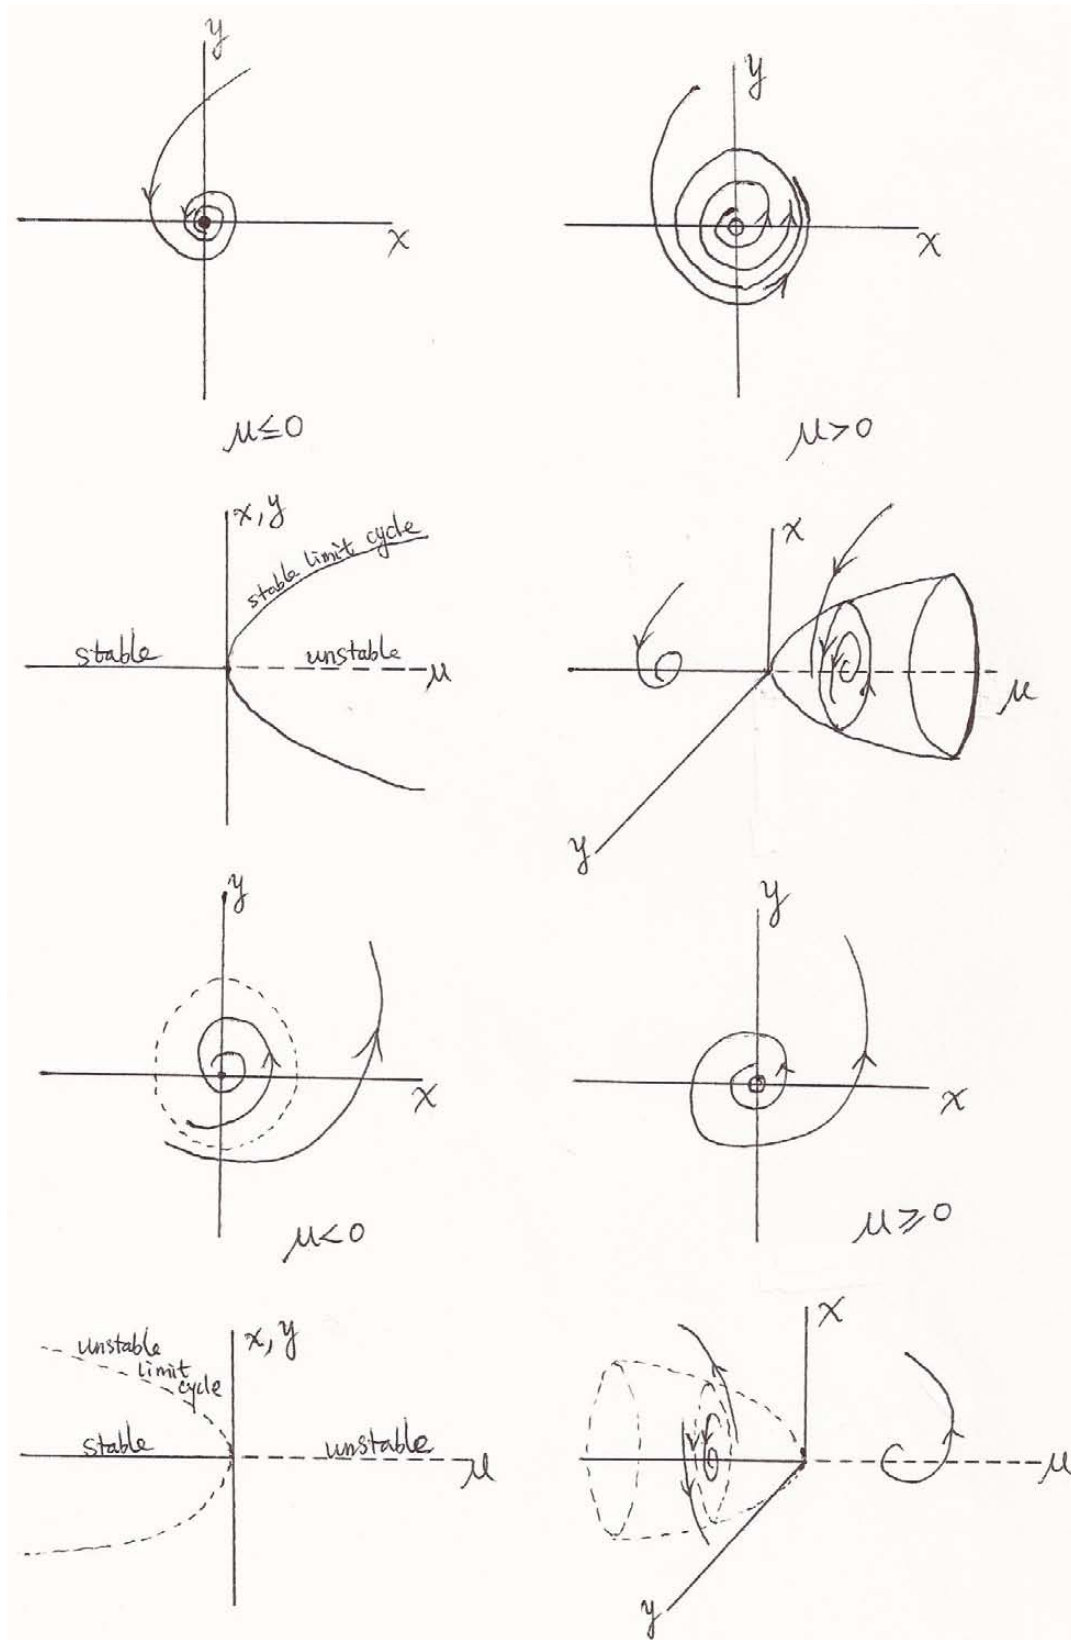 y
x
μ≤0
y
x
μ>0
x, y
stable limit cycle
stable
unstable
μ
x
μ
y
y
x
μ<0
y
x
μ⩾0
x, y
unstable
limit
cycle
stable
unstable
μ
x
μ
y